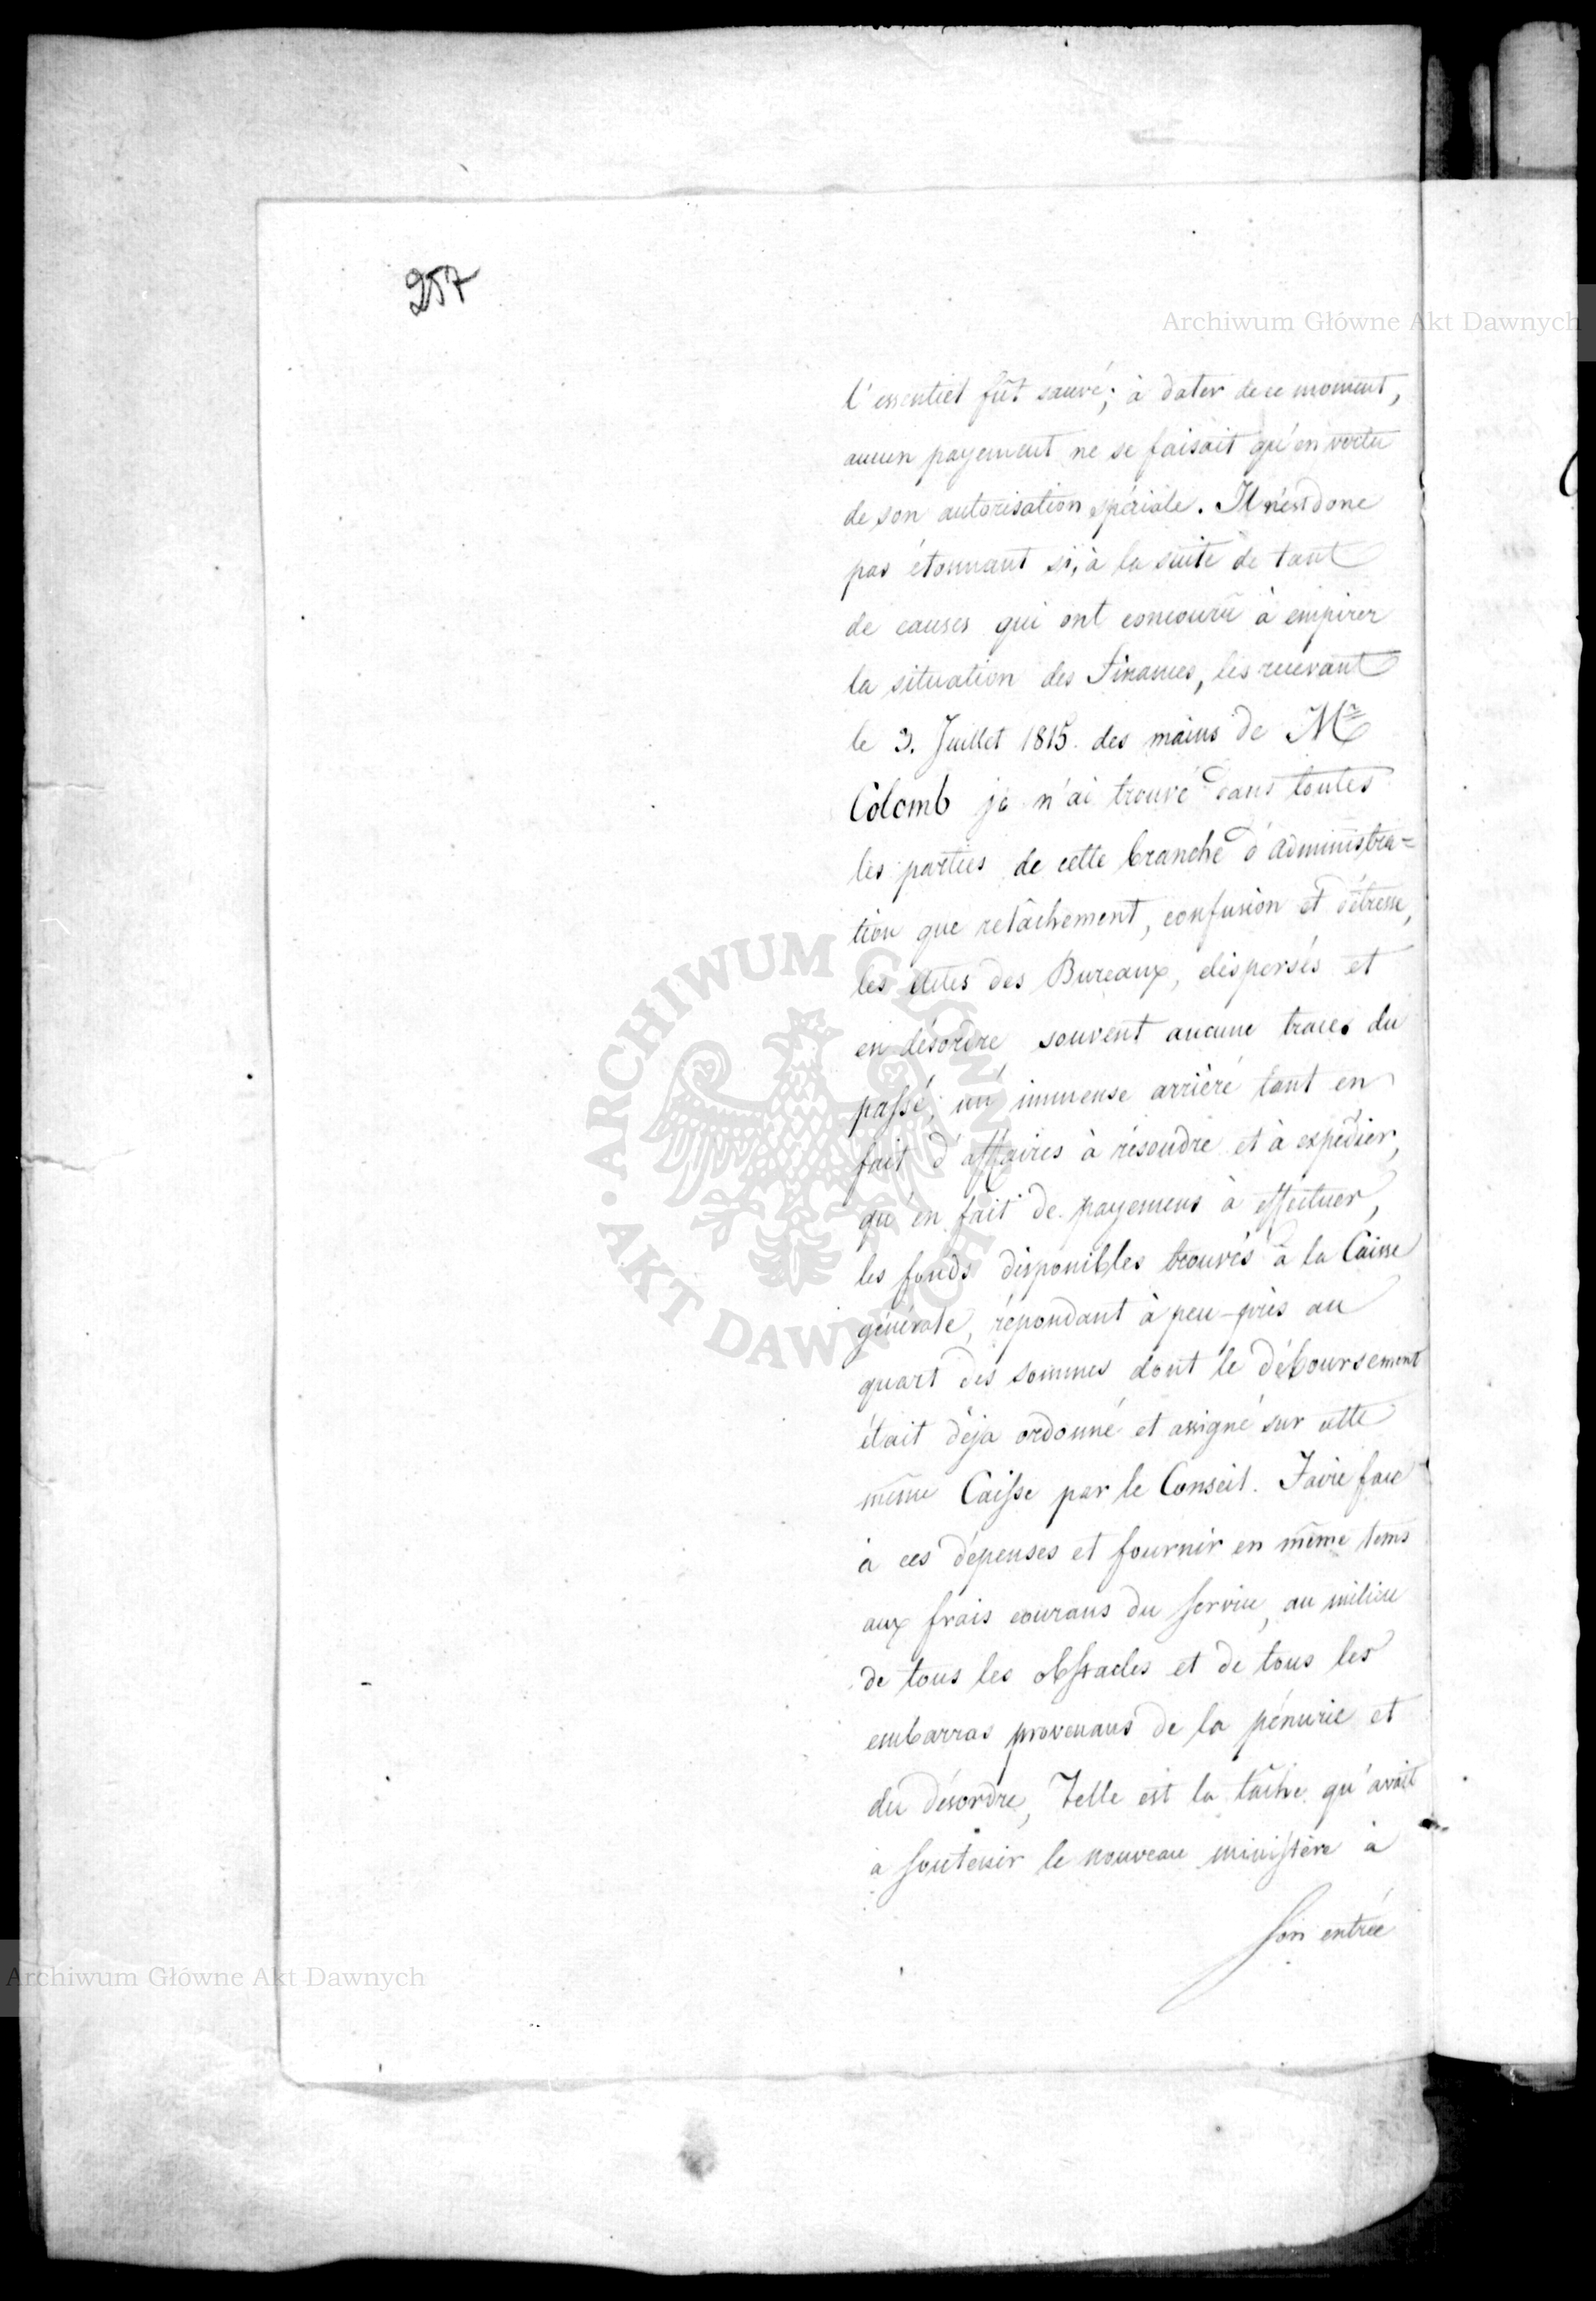 257
Archiwum Główne Akt Dawnych
l'essentiel fût sauvé; à dater de ce moment,
aucun payement ne se faisait qu'en vertu
de son autorisation spéciale. Il n'est donc
pas étonnant si, à la suite de tant
de causes qui ont concouru à empirer
la situation des Finances, les recevant
le 3. Juillet 1815. des mains de Mr
Colomb je n'ai trouvé dans toutes
les parties de cette branche d'administra=
tion que relâchement, confusion et détresse,
les actes des Bureaux, dispersés et
en désordre souvent aucune trace du
passé; un immense arriéré tant en
fait d'affaires à résoudre et à expédier,
qu'en fait de payemens à effectuer,
les fonds disponibles trouvés à la Caisse
générale, répondant à peu-près au
quart des sommes dont le déboursement
était déja ordonné et assigné sur cette
même Caisse par le Conseil. Faire face
à ces dépenses et fournir en même tems
aux frais courans du service, au milieu
de tous les obstacles et de tous les
embarras provenans de la pénurie et
du désordre, Telle est la tâche qu'avait
a soutenir le nouveau ministère à
son entrée
Archiwum Główne Akt Dawnych
ARCHIWUM GŁÓWNE AKT DAWNYCH